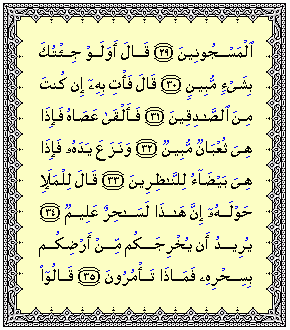 ٱلْمَسْجُونِينَ ٢٩ قَالَ أَوَلَوْ جِئْتُكَ
بِشَىْءٍ مُّبِينٍ ٣٠ قَالَ فَأْتِ بِهِۦٓ إِن كُنتَ
مِنَ ٱلصَّٰدِقِينَ ٣١ فَأَلْقَىٰ عَصَاهُ فَإِذَا
هِىَ ثُعْبَانٌ مُّبِينٌ ٣٢ وَنَزَعَ يَدَهُۥ فَإِذَا
هِىَ بَيْضَآءُ لِلنَّٰظِرِينَ ٣٣ قَالَ لِلْمَلَإِ
حَوْلَهُۥٓ إِنَّ هَٰذَا لَسَٰحِرٌ عَلِيمٌ ٣٤
يُرِيدُ أَن يُخْرِجَكُم مِّنْ أَرْضِكُم
بِسِحْرِهِۦ فَمَاذَا تَأْمُرُونَ ٣٥ قَالُوٓا۟